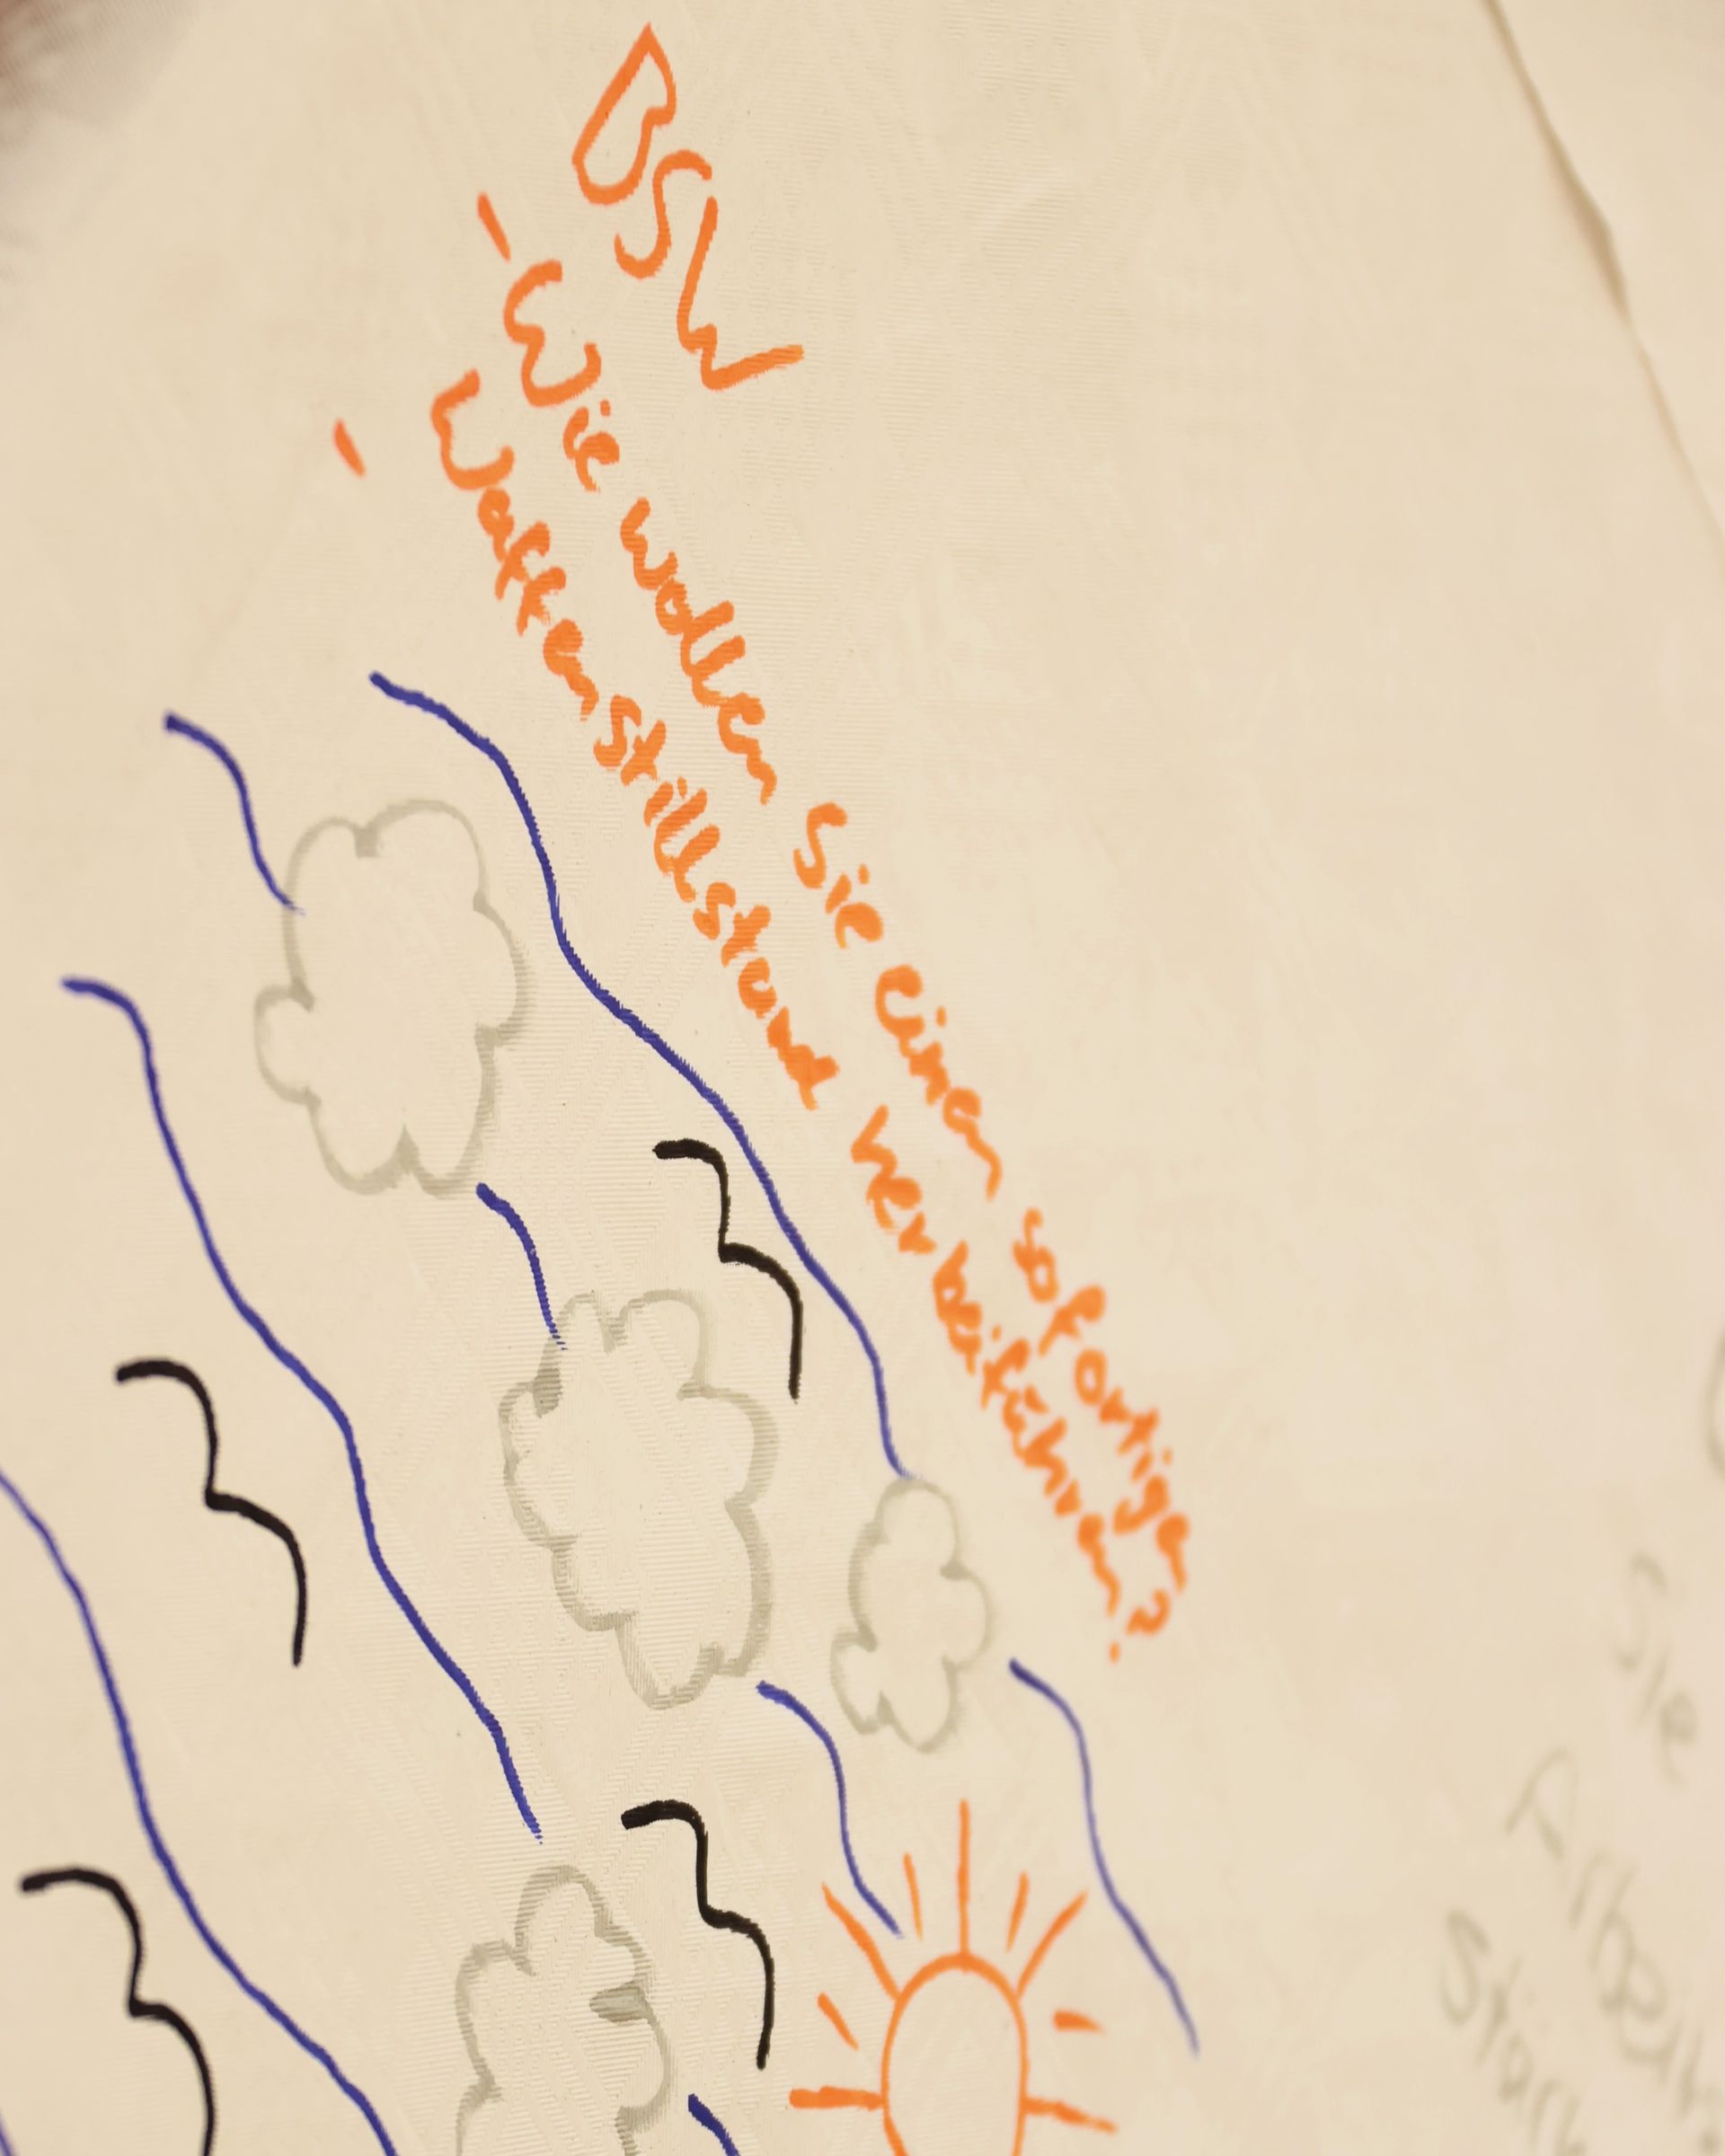 BSW
- Wie wollen Sie einen sofortigen
Waffenstillstand herbeiführen?
-
Sie